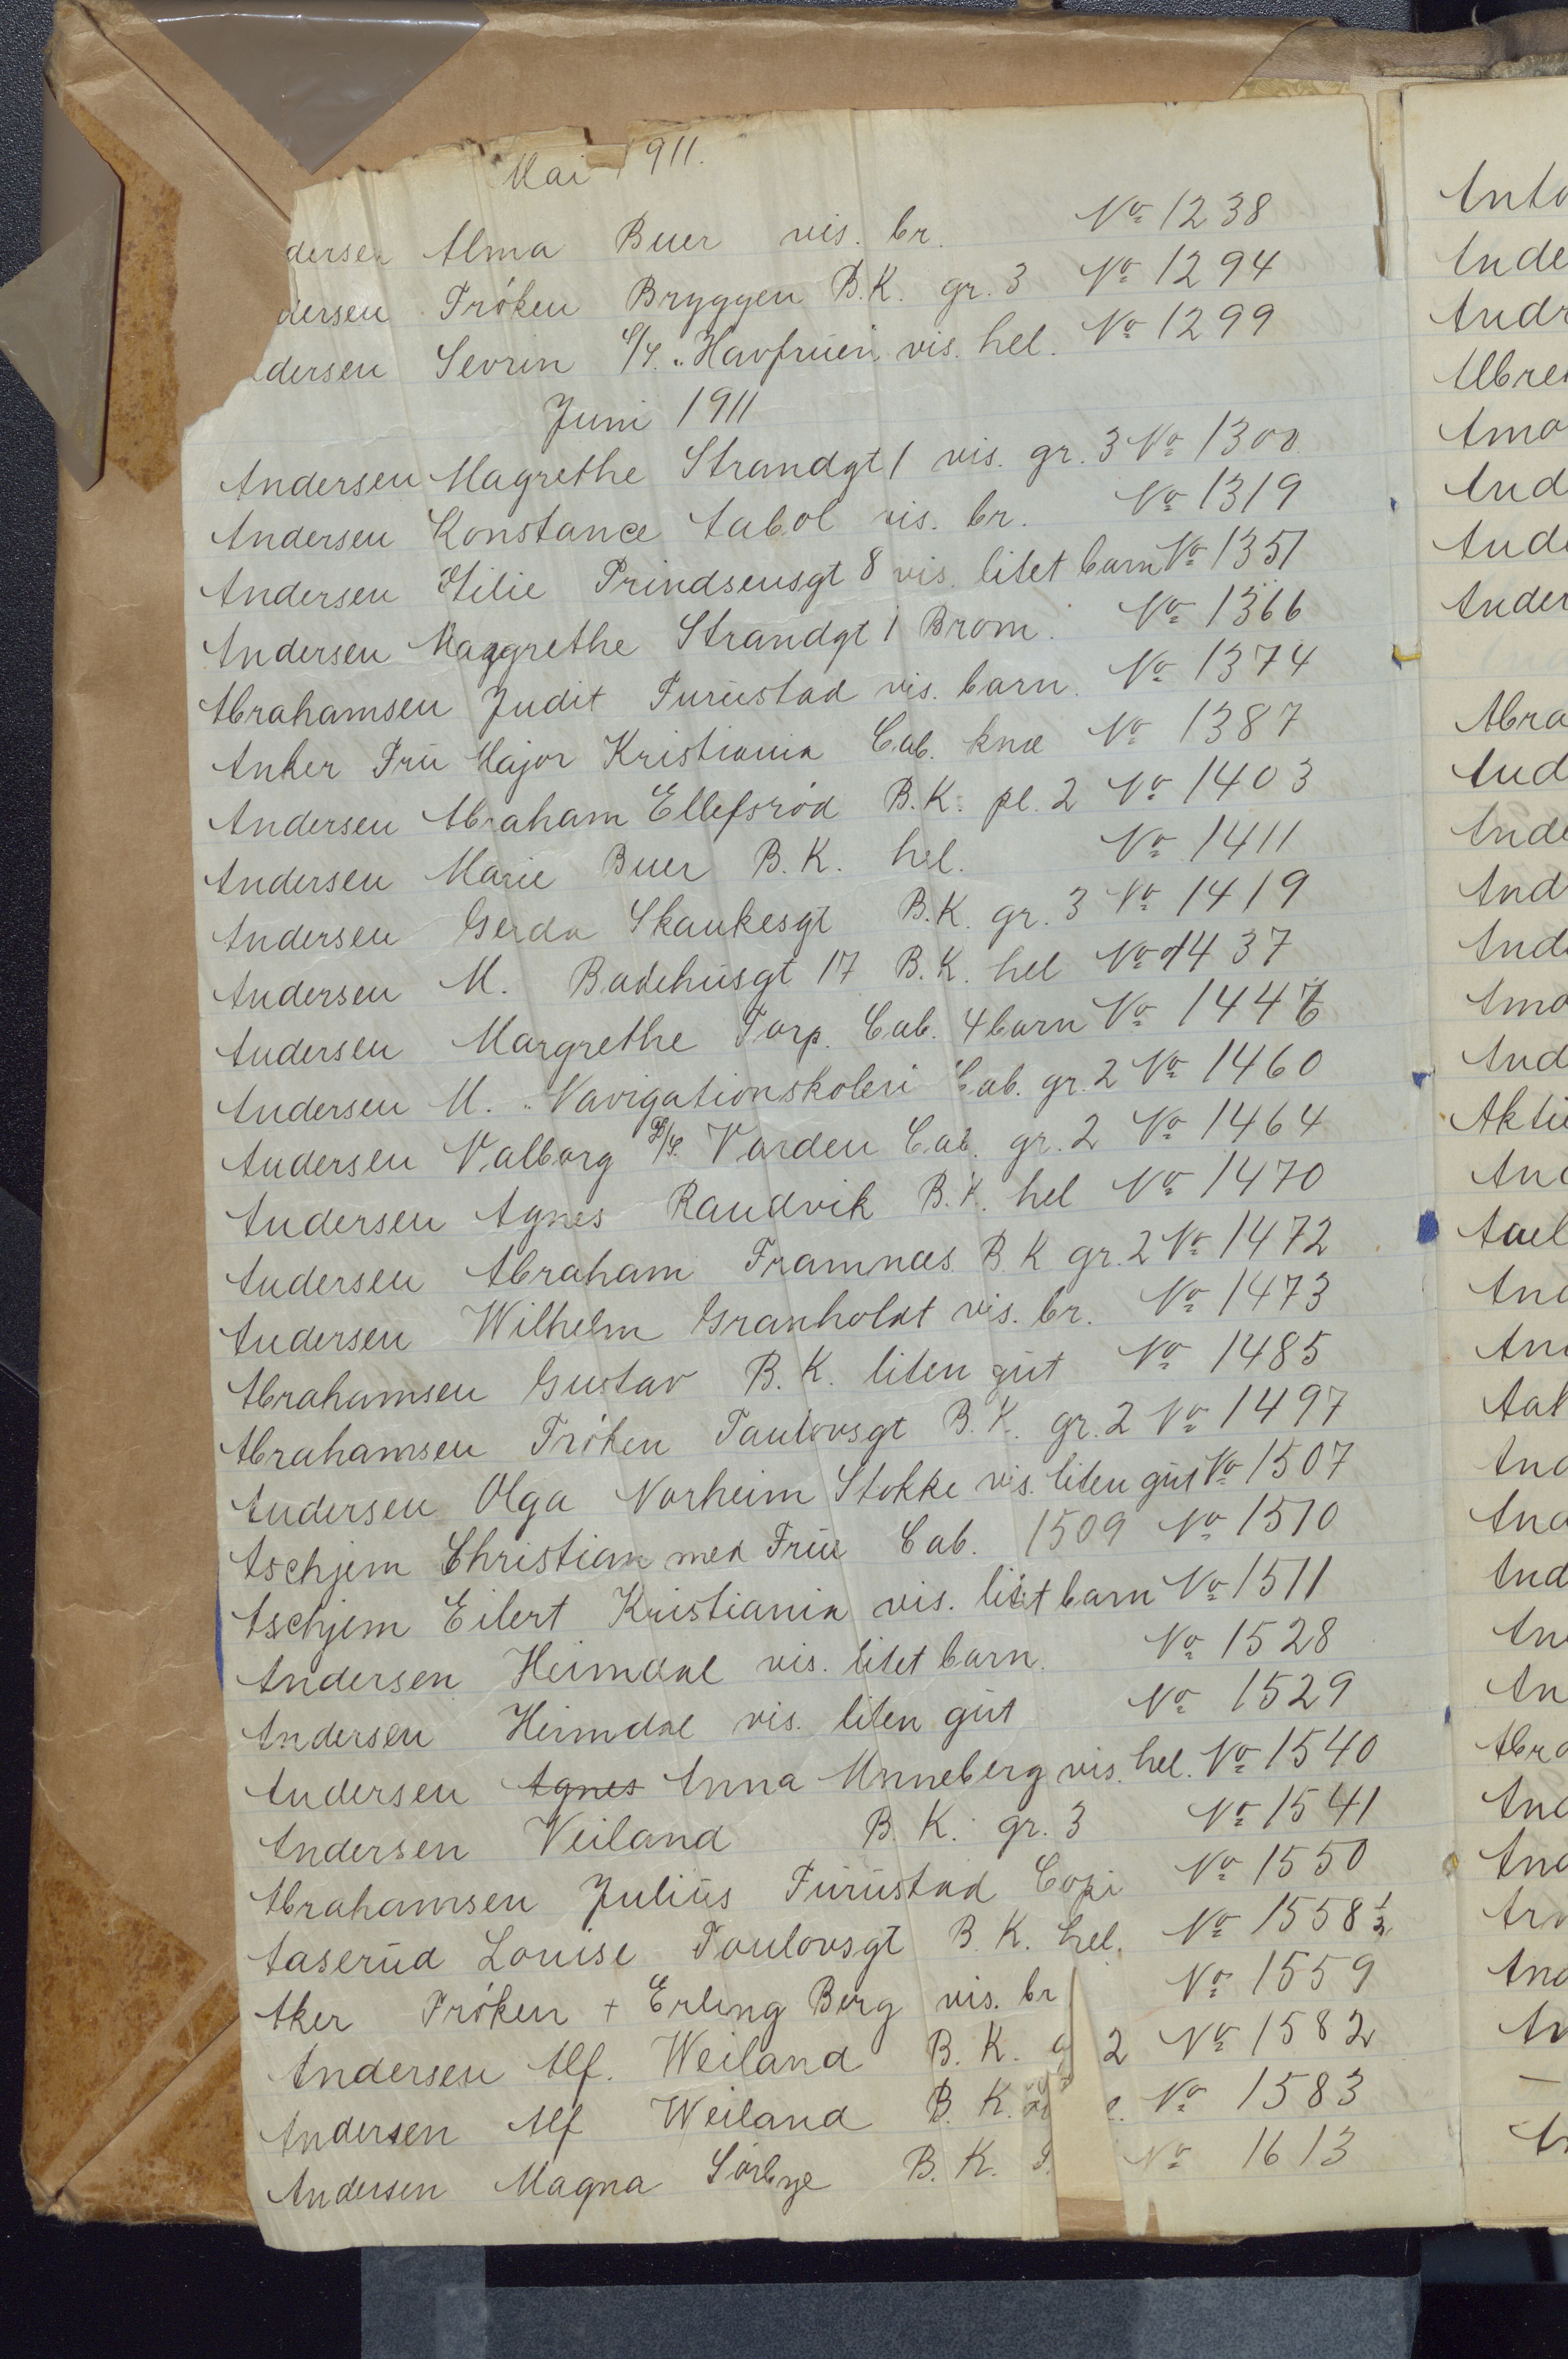 Mai 1911.
dersen Alma Buer vis. br. No 1238
dersen Frøken Bryggen B.K. gr. 3 No 1294
dersen Sevrin S/S. „Havfruen" vis. hel. No 1299
Juni 1911
Andersen Magrethe Strandgt 1 vis. gr. 3 No 1300
Andersen Konstance Aabol vis. br. No 1319
Andersen Otilie Prindsensgt 8 vis. litet barn No 1351
Andersen Maggrethe Strandgt 1 Brom. No 1366
Abrahamsen Judit Furustad vis. barn. No 1374
Anker Fru Major Kristiania Cab. knæ No 1387
Andersen Abraham Ellefsrød B.K. pl. 2 No 1403
Andersen Marie Buer B.K. hel. No 1411
Andersen Gerda Skaukesgt B.K. gr. 3 No 1419
Andersen M. Badehusgt 17 B.K. hel No 1437
Andersen Margrethe Torp. Cab. 4 barn No
Andersen M. „Navigationskolen Cab. gr. 2 No 1460
Andersen Valborg Varden Cab. gr. 2 No 1464
Andersen Agnes Randvik B.K. hel No 1470
Andersen Abraham Framnæs B.K gr. 2 No 1472
Andersen Wilhelm Granholdt vis. br. No 1473
Abrahamsen Gustav B.K. liten gut No 1485
Abrahamsen Frøken Taulovsgt B.K. gr. 2 No 1497
Andersen Olga Norheim Stokke vis. liten gut No 1507
Aschjem Christian med Frue Cab. 1509 No 1510
Aschjem Eilert Kristiania vis. litet barn No 1511
Andersen Heimdal vis. litet barn. No 1528
Andersen Heimdal vis. liten gut No 1529
Andersen Agnes Anna Unneberg vis. hel. No 1540
Andersen Veiland B.K. gr. 3 No 1541
Abrahamsen Julius Furustad Copi No 1550
Aaserud Louise Toulovsgt B.K. hel. No 1558 ½
Aker Frøken + Erling Berg vis. br No 1559
Andersen Alf. Weiland B.K. g 2 No 1582
Andersen Alf Weiland B.K. No 1583
Andersen Magna Sørbye B.K. No 1613
Anto
Ande
Andr
Albre
Amo
And
Ande
Ander
Abra
And
Ande
And
Ande
Amo
And
Aktie
And
Aael
And
And
Aal
And
And
And
An
An
Abra
And
And
Arn
And